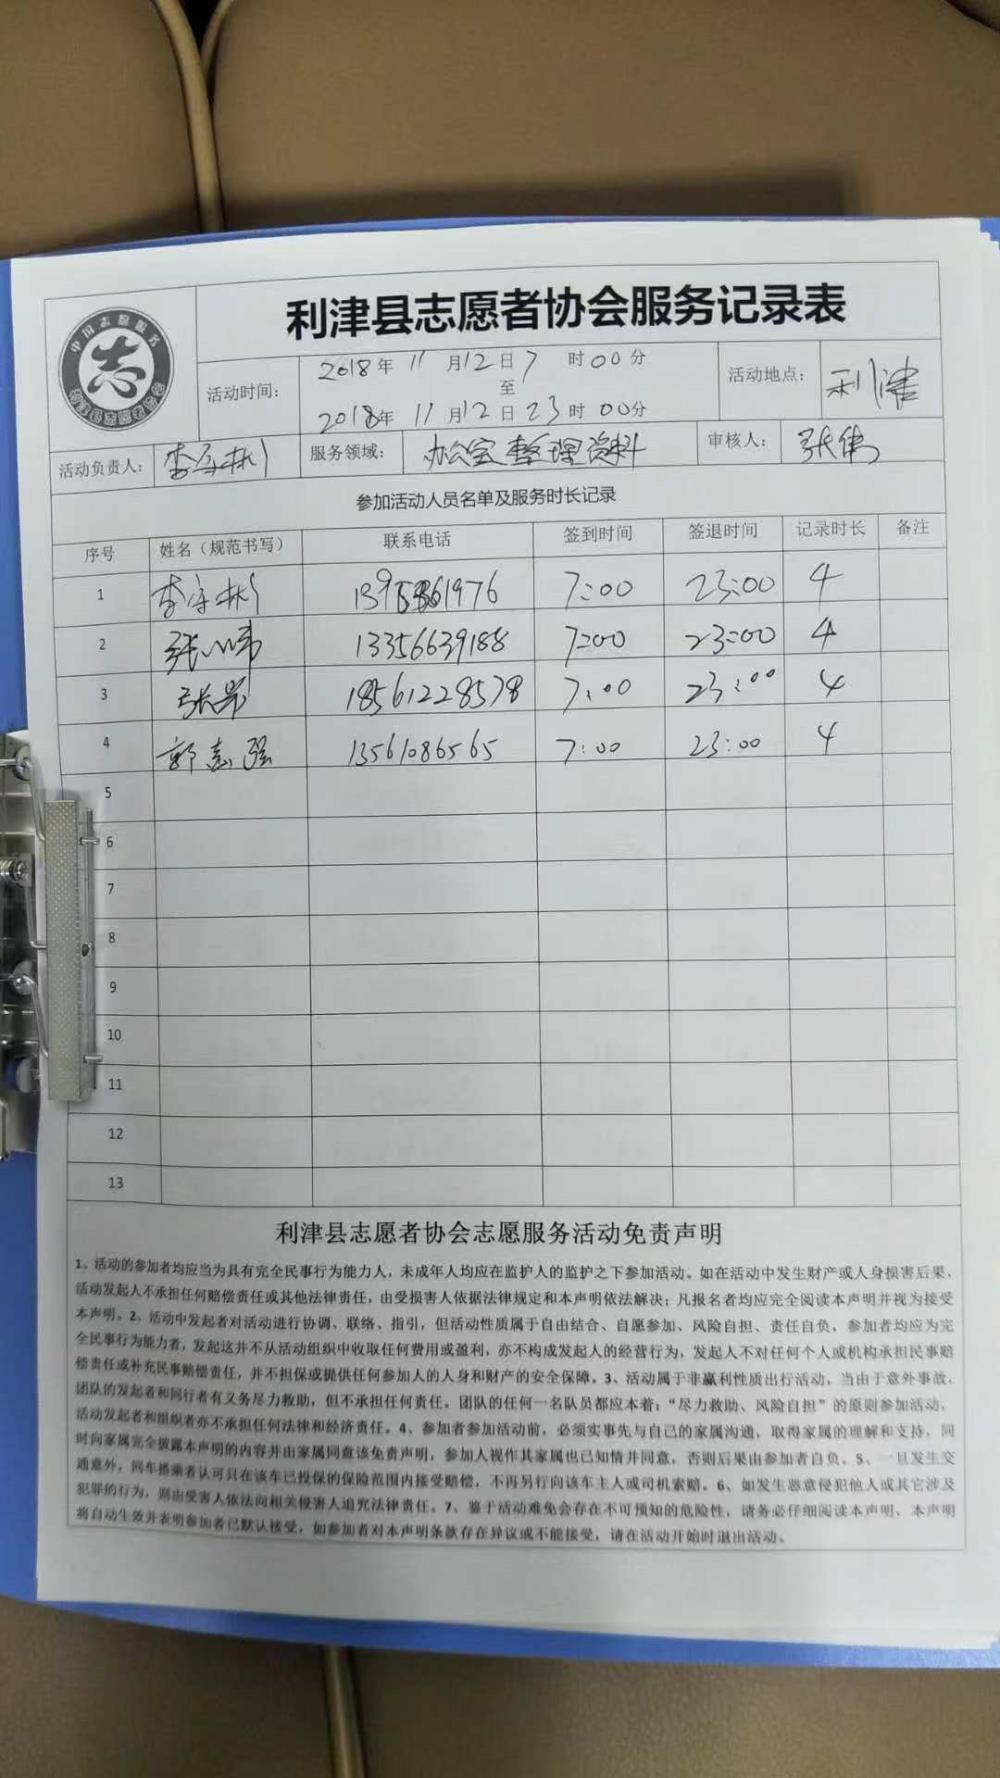 中国志愿服务
志
利津县志愿者协会服务记录表
活动时间：
2018年 11 月12日 7 时00分
至
2018年 11 月12日 23时 00分
活动地点：
利津
活动负责人：
李守彬
服务领域：
办公室整理资料
审核人：
张伟
参加活动人员名单及服务时长记录
序号 姓名（规范书写） 联系电话 签到时间 签退时间 记录时长 备注
1 李守彬 7:00 23:00 4
2 13356639188 7:00 23:00 4
3 18561228578 7:00 23:00 4
4 郭志强 13561086565 7:00 23:00 4
5
6
7
8
9
10
11
12
13
利津县志愿者协会志愿服务活动免责声明
1、活动的参加者均应当为具有完全民事行为能力人，未成年人均应在监护人的监护之下参加活动。如在活动中发生财产或人身损害后果，
活动发起人不承担任何赔偿责任或其他法律责任，由受损害人依据法律规定和本声明依法解决；凡报名者均应完全阅读本声明并视为接受
本声明。2、活动中发起者对活动进行协调、联络、指引，但活动性质属于自由结合、自愿参加、风险自担、责任自负，参加者均应为完
全民事行为能力者，发起这并不从活动组织中收取任何费用或盈利，亦不构成发起人的经营行为，发起人不对任何个人或机构承担民事赔
偿责任或补充民事赔偿责任，并不担保或提供任何参加人的人身和财产的安全保障。3、活动属于非赢利性质出行活动，当由于意外事故，
团队的发起者和同行者有义务尽力救助，但不承担任何责任。团队的任何一名队员都应本着：“尽力救助、风险自担”的原则参加活动，
活动发起者和组织者亦不承担任何法律和经济责任。4、参加者参加活动前，必须实事先与自己的家属沟通，取得家属的理解和支持，同
时向家属完全披露本声明的内容并由家属同意该免责声明，参加人视作其家属也已知情并同意，否则后果由参加者自负。5、一旦发生交
通意外，同车搭乘者认可只在该车已投保的保险范围内接受赔偿，不再另行向该车主人或司机索赔。6、如发生恶意侵犯他人或其它涉及
犯罪的行为，则由受害人依法向相关侵害人追究法律责任。7、鉴于活动难免会存在不可预知的危险性，请务必仔细阅读本声明，本声明
将自动生效并表明参加者已默认接受，如参加者对本声明条款存在异议或不能接受，请在活动开始时退出活动。